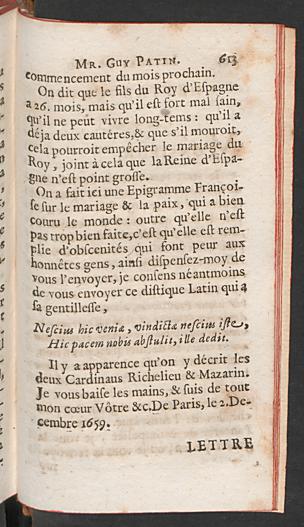 MR. GUY PATIN. 613
commencement du mois prochain.
On dit que le fils du Roy d'Espagne
a 26. mois, mais qu'il est fort mal sain,
qu'il ne peut vivre long-tems : qu'il a
déja deux cautéres, & que s'il mouroit,
cela pourroit empêcher le mariage du
Roy, joint à cela que la Reine d'Espa-
gne n'est point grosse.
On a fait ici une Epigramme Françoi-
se sur le mariage & la paix, qui a bien
couru le monde : outre qu'elle n'est
pas trop bien faite, c'est qu'elle est rem-
plie d'obscenités qui font peur aux
honnêtes gens, ainsi dispensez-moy de
vous l'envoyer, je consens néantmoins
de vous envoyer ce distique Latin qui a
sa gentillesse,
Nescius hic veniæ, vindictæ nescius iste,
Hic pacem nobis abstulit, ille dedit.
Il y a apparence qu'on y décrit les
deux Cardinaus Richelieu & Mazarin.
Je vous baise les mains, & suis de tout
mon cœur Vôtre &c. De Paris, le 2. De-
cembre 1659.
LETTRE